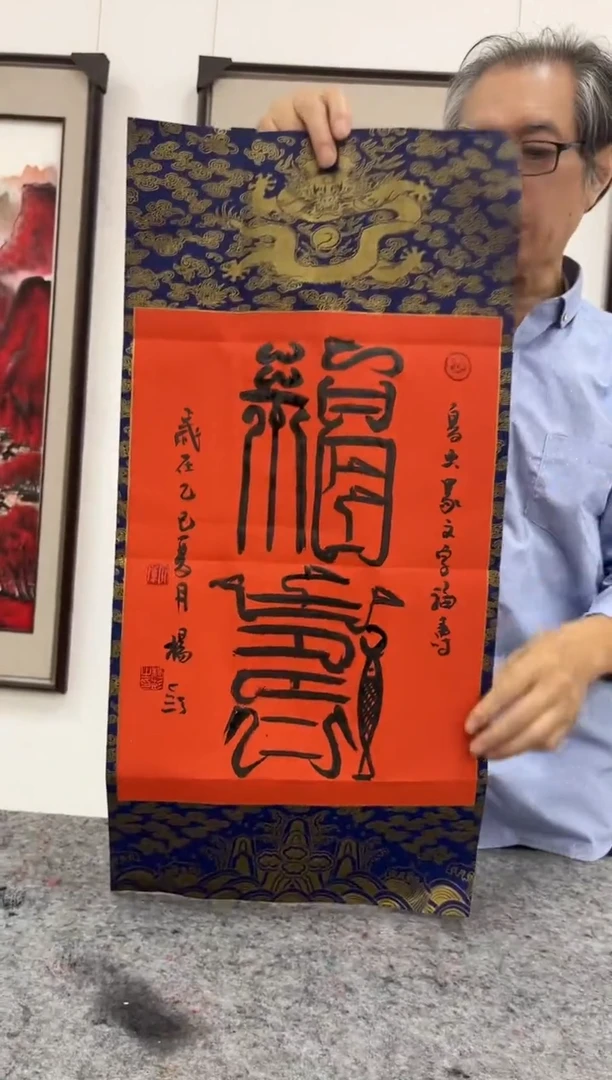 鳥大篆文字福壽
福壽
歲在乙巳夏月 楊